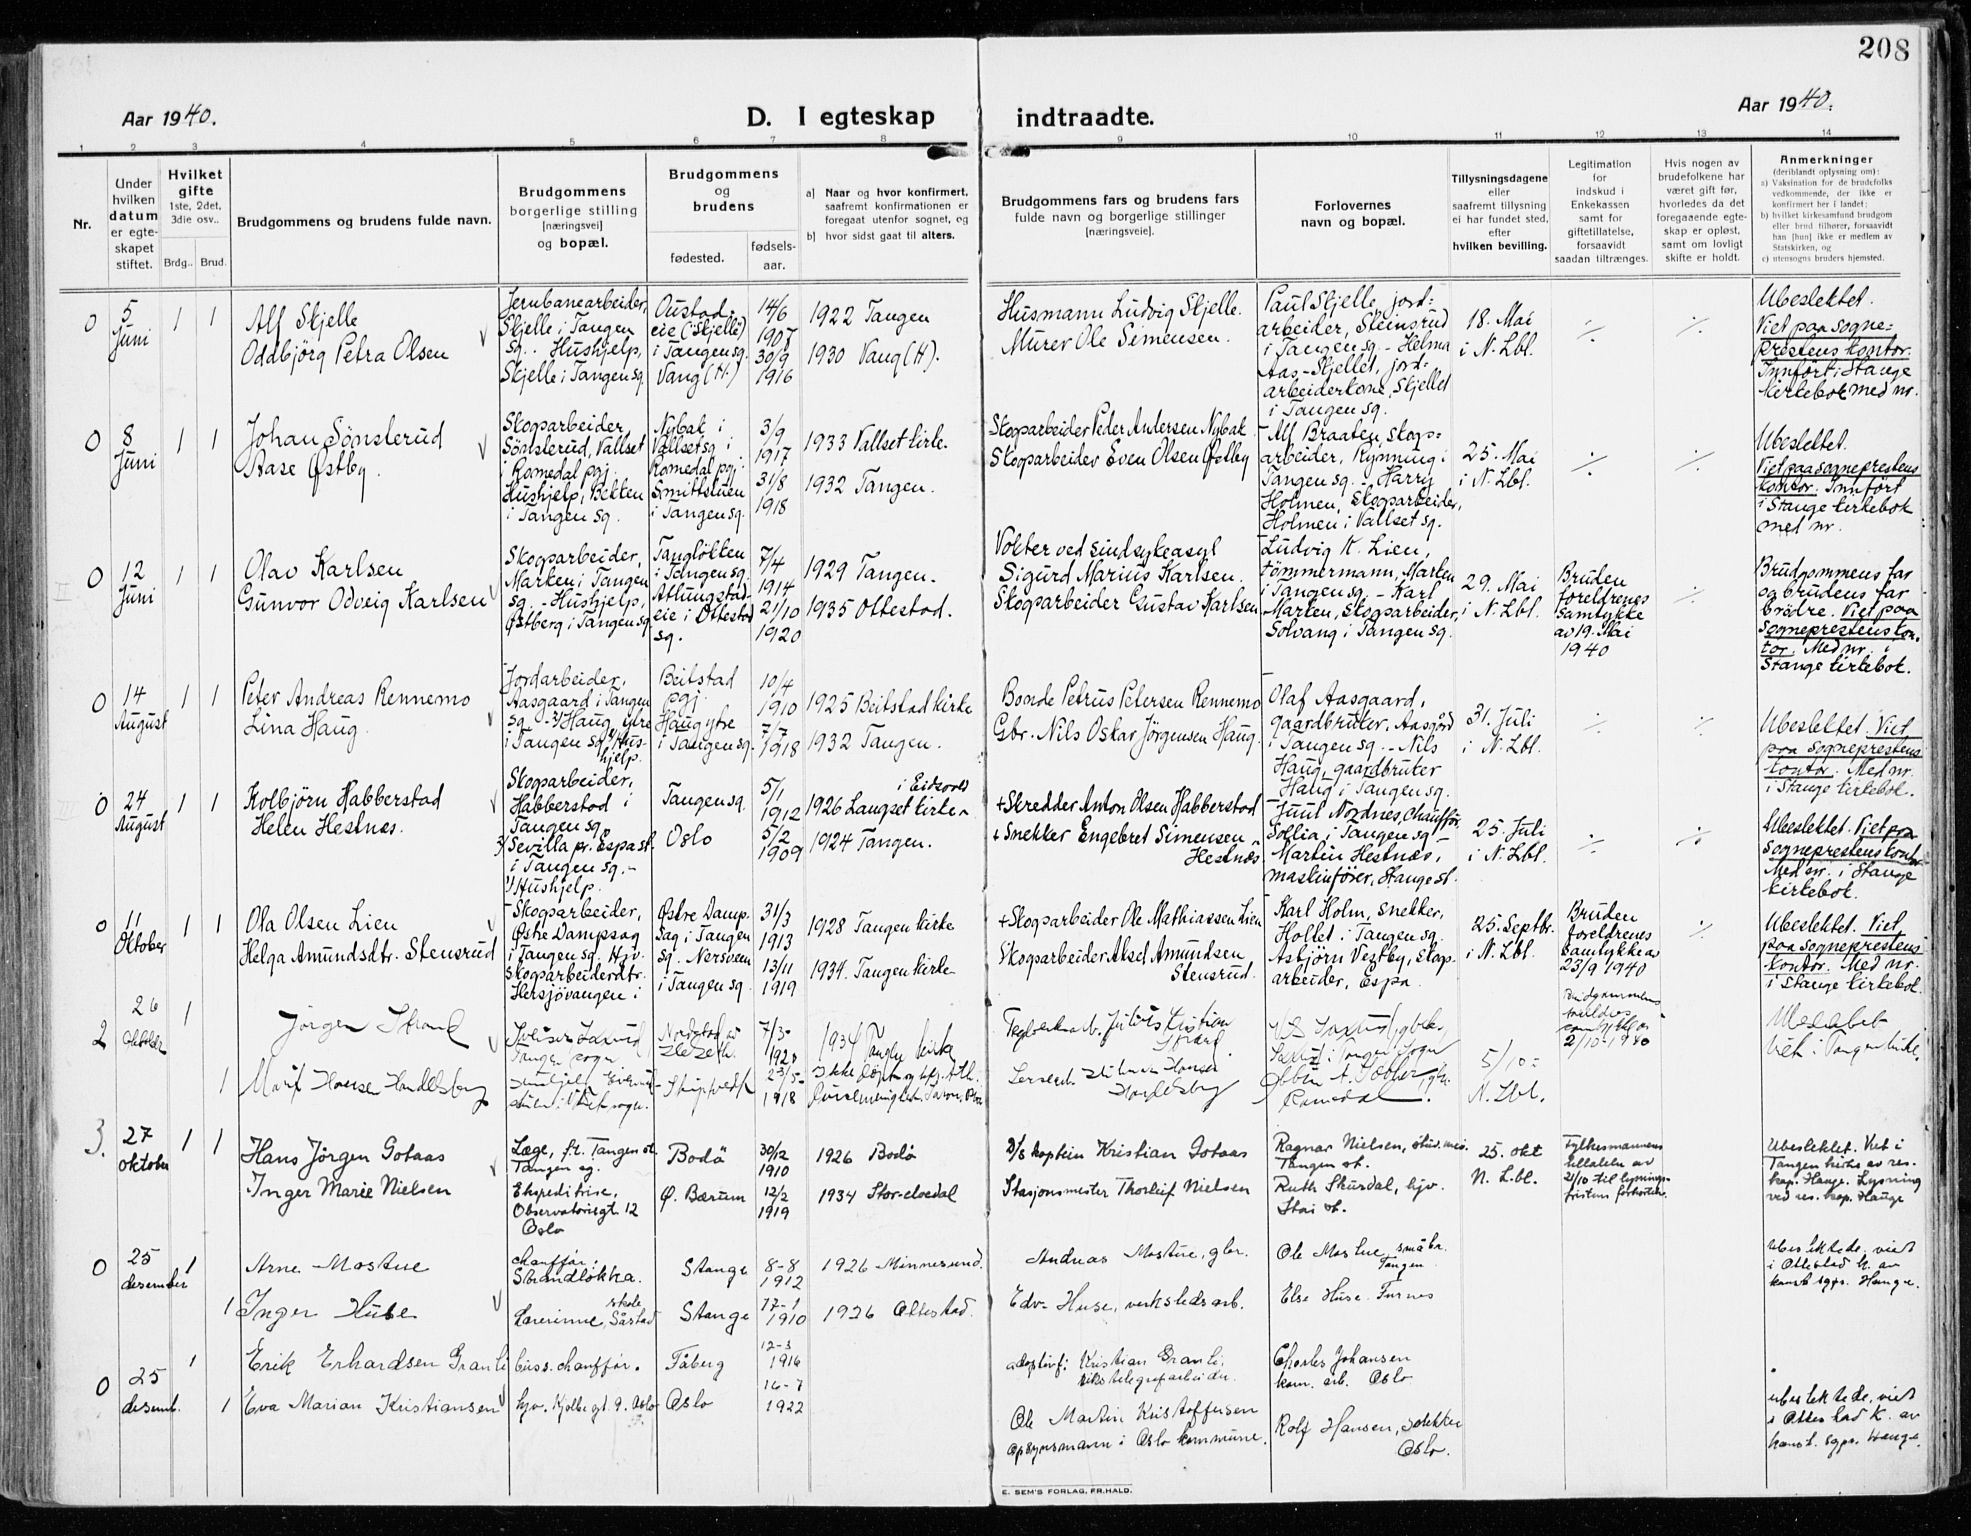 208
Aar 1940.
D. I egteskap indtraadte.
Aar 1940.
1 2 3 4 5 6 7 8 9 10 11 12 13 14
Nr.
Under hvilken datum er egteskapet stiftet.
Hvilket gifte
1ste, 2det, 3die osv..
Brdg.. Brud.
Brudgommens og brudens fulde navn.
Brudgommens borgerlige stilling [næringsvei] og bopæl.
Brudgommens og brudens
fødested.
fødsels-aar.
a] Naar og hvor konfirmert, saafremt konfirmationen er foregaat utenfor sognet, og
b] hvor sidst gaat til alters.
Brudgommens fars og brudens fars fulde navn og borgerlige stillinger [næringsveie].
Forlovernes navn og bopæl.
Tillysningsdagene eller saafremt tillysning ei har fundet sted, efter hvilken bevilling.
Legitimation for indskud i Enkekassen samt for giftetillatelse, forsaavidt saadan tiltrænges.
Hvis nogen av brudefolkene har været gift før, hvorledes da det foregaaende egteskap er opløst, samt om lovligt skifte er holdt.
Anmerkninger (deriblandt oplysning om):
a) Vaksination for de brudefolks vedkommende, der ikke er konfirmert her i landet;
b) hvilket kirkesamfund brudgom eller brud tilhører, forsaavidt han [hun] ikke er medlem av Statskirken, og
c) utensogns bruders hjemsted.
0
5
Juni
1 1
Alf Skjelle
Oddbjörg Petra Olsen
Jernbanearbeider,
Skjelle i Tangen
sg. - Hushjelp,
Skjelle i Tangen sg
Oustad-
eie (Skjelle)
i Tangen sg.
Vang (H.)
14/6
1907
30/9
1916
1922 Tangen
1930 Vang (H).
Husmann Ludvig Skjelle.
Murer Ole Simensen.
Paul Skjelle, jord-
arbeider, Steinsrud
i Tangen sg. - Helma
Aas-Skjellet, jord-
arbeiderkone, Skjellet
i Tangen sg.
18. Mai
i N. Lbl.
Ubeslektet.
Viet paa sogne-
prestens kontor.
Innført i Stange
kirkebok med nr.
0
8
Juni
1 1
Johan Sönslerud
Aase Østby.
Skogsarbeider
Sönslerud, Vallset
i Romedal pgj.
Hushjelp, Bekken
i Tangen sg.
Nybak i
Vallset sg. i
Romedal pgj.
Smittstuen
i Tangen sg.
3/9
1917
31/8
1918
1933 Vallset kirke.
1932 Tangen.
Skogsarbeider Peder Andersen Nybak
Skogsarbeider Even Olsen Østby
Alf Braaten, skogs-
arbeider, Rynning i
Tangen sg. - Harry
Holmen, Skogsarbeider,
Holmen i Vallset sg.
25. Mai
i N. Lbl.
Ubeslektet.
Viet paa sogneprestens
kontor. Innført
i Stange kirkebok
med nr.
0
12
Juni
1 1
Olav Karlsen
Gunvor Odveig Karlsen
Skogsarbeider,
Marken i Tangen
sg. - Hushjelp,
Østberg i Tangen sg
Tangløkken
i Tangen sg.
Atlungstad-
eie i Ottestad
sg.
7/4
1914
21/10
1920
1929 Tangen.
1935 Ottestad.
Vokter ved sindsykeasyl
Sigurd Marius Karlsen.
Skogsarbeider Gustav Karlsen
Ludvig K. Lien,
tømmermann, Marken
i Tangen sg. - Karl
Marken, Skogsarbeider,
Solvang i Tangen sg.
29. Mai
i N. Lbl.
Bruden
foreldrenes
samtykke
av 19. Mai
1940
Brudgommens far
og brudens far
brødre. Viet paa
Sogneprestens kon-
tor. Med nr. i
Stange kirkebok.
0
14
August
1 1
Peter Andreas Rennemo
Lina Haug.
Jordarbeider,
Aasgaard i Tangen
sg. - Haug ytre
i Tangen sg. Hus-
hjelp.
Beitstad
pgj.
Haug ytre
i Tangen sg.
10/4
1910
7/7
1918
1925 Beitstad kirke
1932 Tangen.
Bonde Petrus Petersen Rennemo
Gbr. Nils Oskar Jörgensen Haug.
Olaf Aasgaard,
gaardbruker, Aasgård
i Tangen sg. - Nils
Haug, gaardbruker
Haug i Tangen sg.
31. Juli
i N. Lbl.
Ubeslektet. Viet
paa sogneprestens
kontor. Med nr.
i Stange kirkebok.
0
24
August
1 1
Kolbjörn Habberstad
Helen Hestnæs.
Skogsarbeider,
Habberstad i
Tangen sg.
Sevilla pr. Espa st.
i Tangen sg. -
Hushjelp.
Tangen sg.
Oslo
5/1
1912
5/2
1909
i Eidsvold
1926 Langset kirke
1924 Tangen.
+ Skredder Anton Olsen Habberstad
+ Snekker Engebret Simensen
Hestnæs
Juul Nordnes, Chauffør
Sollia i Tangen sg -
Martin Hestnæs,
maskinfører, Stange st.
25. Juli
i N. Lbl.
Ubeslektet. Viet paa
Sogneprestens kontor
Med nr. i Stange
kirkebok.
0
11
Oktober
1 1
Ola Olsen Lien
Helga Amundsdtr. Stensrud
Skogsarbeider,
Østre Dampsag
i Tangen sg. Hjv.
skogsarbeiderdtr.
Hersjövangen i
Østre Damp-
sag i Tangen
sg. Nersveen
i Tangen sg
31/3
1913
13/11
1919
1928 Tangen kirke
1934. Tangen kirke
+ Skogsarbeider Ole Mathiassen Lien
Skogsarbeider Aksel Amundsen
Stensrud.
Karl Holm, snekker,
Holtet i Tangen sg.
Asbjörn Vestby, Skogs-
arbeider, Espa.
25. Septbr.
i N. Lbl.
Bruden
foreldrenes
samtykke av
23/9 1940
Ubeslektet. Viet
paa sogneprestens
kontor. Med nr.
i Stange kirkebok.
2
26
oktober
1
Jørgen Strand
Tangen sogn
7/3
1920
1934 Tangen kirke
Brudgommens
foreldres
samtykke av
2/10-1940
5/10
N. Lbl.
Viet i Tangen kirke.
1
Marit Hansen Handelsby
23/5
1918
Romedal.
3.
27
oktober
1 1
Hans Jörgen Gotaas
Inger Marie Nielsen
Læge, fr. Tangen st.
Tangen sg.
Ekspeditrise,
Observatoriegt. 12
Oslo
Bodø
Ø. Bærum
30/12
1910
12/2
1919
1926 Bodø
1934 Stor-elvedal
D/s kaptein Kristian Gotaas
Stasjonsmester Thorleif Nielsen
Ragnar Nielsen, stud. med.
Tangen st.
Ruth Skurdal, hjv.
Stai st.
25. okt
N. L.bl.
Fylkesmannens
tillatelse av
21/10 til lysnings-
fristens forkortelse.
Ubeslektet. Viet i
Tangen kirke av res.
kap. Hauge. Lysning
ved res. kap. Hauge
0
25
desember
1
Arne Mostue
chauffør.
Strandløkka.
Stange
8-8
1912
1926 Minnesund.
Andreas Mostue, gbr.
Ole Mostue småbr.
Tangen
Ubeslektede, viet
i Ottestad k. av
konst. sgpr. Hauge.
1
Inger Huse
skole
Lærerinne, Såstad
Stange
17-1
1910
1926 Ottestad.
Edv. Huse, verkstedsarb.
Else Huse. Furnes
0
25
desemb.
1
Erik Erhardsen Granli
buss.chauffør.
Fåberg
12-3
1916
adoptivf: Kristian Granli,
rikstelegrafarbeider.
Charles Johansen
kom. arb. Oslo
1
Eva Marian Kristiansen
hjv. Kjølberggt. 9. Oslo
Oslo
16-7
1922
Ole Martin Kristoffersen
opsynsmann i Oslo kommune.
Rolf Hansen, snekker
Oslo.
ubeslektede, viet
i Ottestad k. av
konst. sgpr. Hauge.
E. SEM'S FORLAG, FR.HALD.